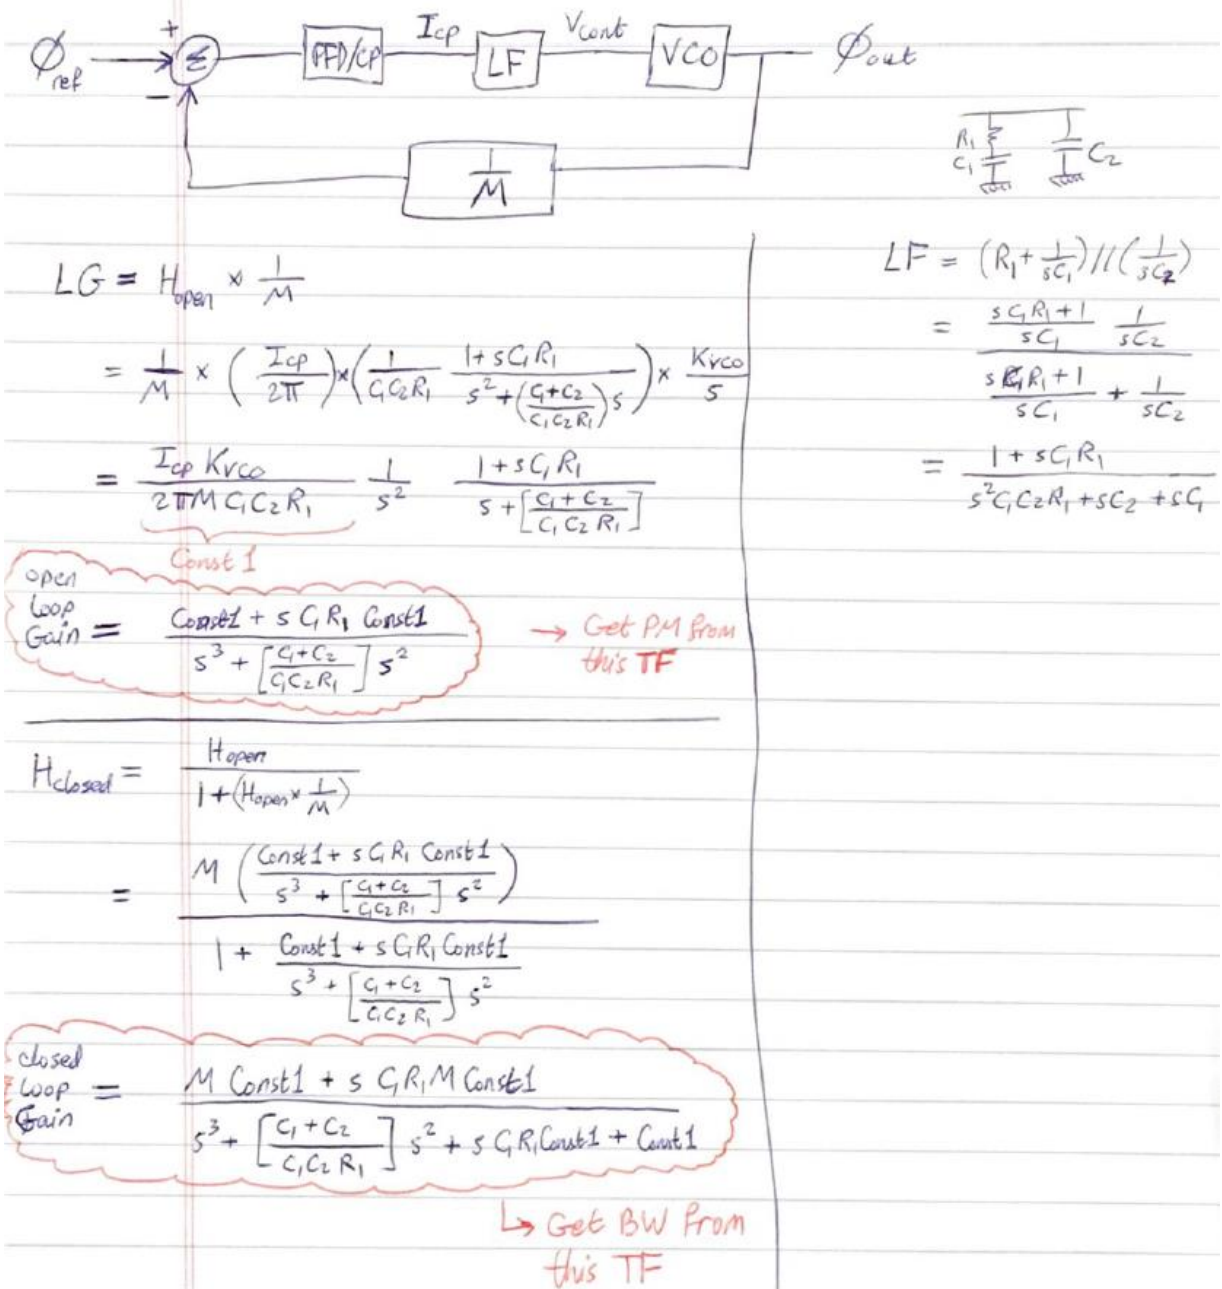 ϕref + − Σ PFD/CP Icp LF Vcont VCO ϕout
1/M
R1 C1 C2
LG = Hopen × 1/M
= 1/M × (Icp/2π) × (1/(C1C2R1) (1+sC1R1)/(s²+((C1+C2)/(C1C2R1))s)) × Kvco/s
= (Icp Kvco)/(2πM C1C2R1) 1/s² (1+sC1R1)/(s+[(C1+C2)/(C1C2R1)])
Const 1
open
loop
Gain = (Const1 + s C1R1 Const1)/(s³ + [(C1+C2)/(C1C2R1)] s²)
→ Get PM from
this TF
Hclosed = Hopen/(1+(Hopen × 1/M))
= M ((Const1 + s C1R1 Const1)/(s³ + [(C1+C2)/(C1C2R1)] s²)) / (1 + (Const1 + s C1R1 Const1)/(s³ + [(C1+C2)/(C1C2R1)] s²))
closed
loop
Gain = (M Const1 + s C1R1 M Const1)/(s³ + [(C1+C2)/(C1C2R1)] s² + s C1R1 Const1 + Const1)
↳ Get BW from
this TF
LF = (R1 + 1/sC1) // (1/sC2)
= ((sC1R1+1)/sC1 1/sC2)/((sC1R1+1)/sC1 + 1/sC2)
= (1 + sC1R1)/(s²C1C2R1 + sC2 + sC1)